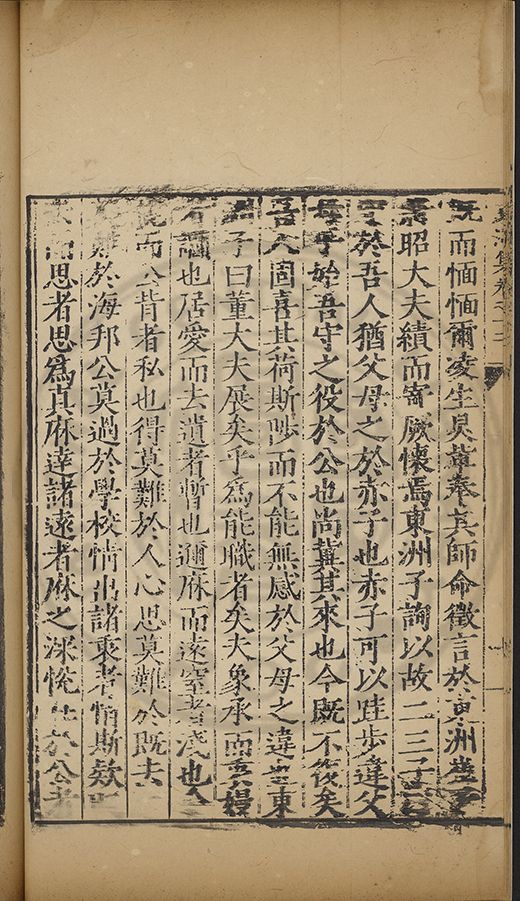 集卷之十二
而恤恤爾凌生具輩奉其師命徵言於東洲
昭大夫績而寄厥懷焉東洲子詢以故二三子
於吾人猶父母之於赤子也赤子可以跬步違父
母乎始吾守之役於公也尚冀其來也今既不復矣
吾人固喜其荷斯陟而不能無感於父母之違東
子曰董大夫展矣乎為能職者矣夫象承而
也居愛而去遺者暫也運庥而遠窒者淺也
而公昔者私也得莫難於人心思莫難於既去
難於海邦公莫過於學校情出諸乘者情斯欸
而思者思為真庥達諸遠者庥之深於公